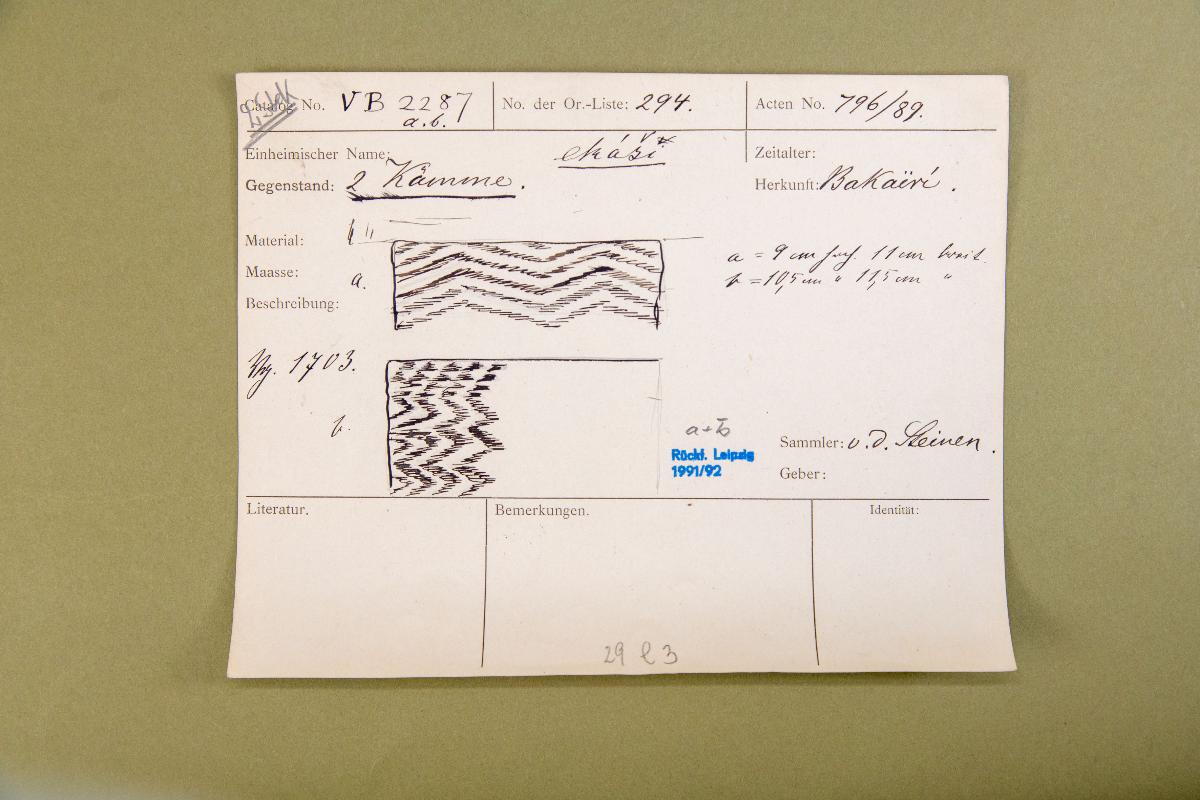 2 Stck
Catalog No. VB 2287 a.b.
No. der Or.-Liste: 294.
Acten No. 796/89.
Einheimischer Name: ekáži
Zeitalter:
Gegenstand: 2 Kämme.
Herkunft: Bakaïrí.
Material:
a = 9 cm hoch. 11 cm breit.
Maasse:
b = 10,5 cm " 11,5 cm "
a.
Beschreibung:
Vgl. 1703.
b.
a+b
Rückf. Leipzig
1991/92
Sammler: v. d. Steinen.
Geber:
Literatur.
Bemerkungen.
Identität:
29 l 3